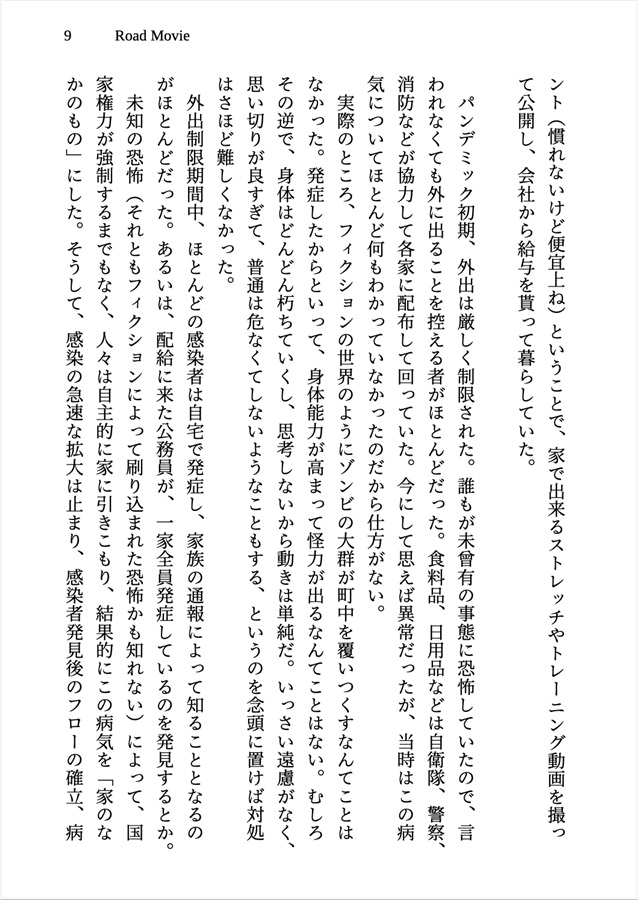 9 Road Movie
ント（慣れないけど便宜上ね）ということで、家で出来るストレッチやトレーニング動画を撮っ
て公開し、会社から給与を貰って暮らしていた。
パンデミック初期、外出は厳しく制限された。誰もが未曾有の事態に恐怖していたので、言
われなくても外に出ることを控える者がほとんどだった。食料品、日用品などは自衛隊、警察、
消防などが協力して各家に配布して回っていた。今にして思えば異常だったが、当時はこの病
気についてほとんど何もわかっていなかったのだから仕方がない。
実際のところ、フィクションの世界のようにゾンビの大群が町中を覆いつくすなんてことは
なかった。発症したからといって、身体能力が高まって怪力が出るなんてことはない。むしろ
その逆で、身体はどんどん朽ちていくし、思考しないから動きは単純だ。いっさい遠慮がなく、
思い切りが良すぎて、普通は危なくてしないようなこともする、というのを念頭に置けば対処
はさほど難しくなかった。
外出制限期間中、ほとんどの感染者は自宅で発症し、家族の通報によって知ることとなるの
がほとんどだった。あるいは、配給に来た公務員が、一家全員発症しているのを発見するとか。
未知の恐怖（それともフィクションによって刷り込まれた恐怖かも知れない）によって、国
家権力が強制するまでもなく、人々は自主的に家に引きこもり、結果的にこの病気を「家のな
かのもの」にした。そうして、感染の急速な拡大は止まり、感染者発見後のフローの確立、病